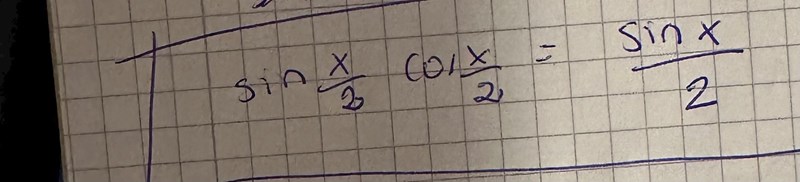 sin x/2 cos x/2 = sin x/2